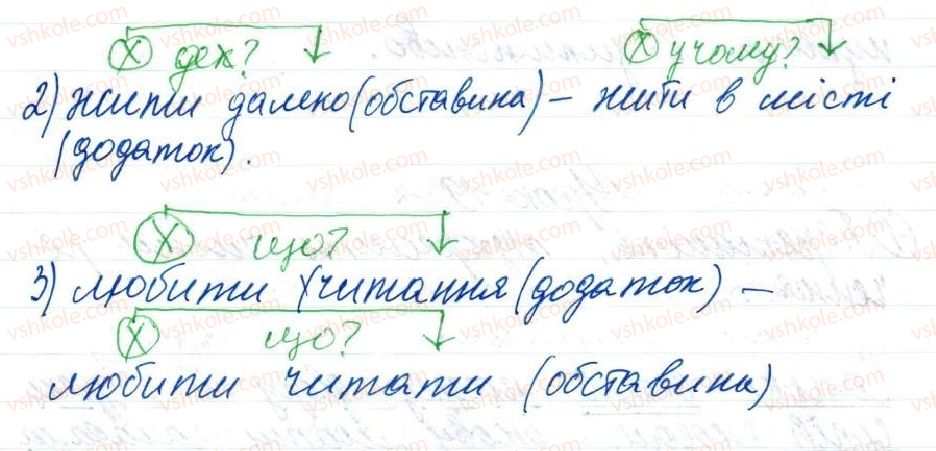 х де х? х у чому?
2) жити далеко (обставина) – жити в місті
(додаток).
х що?
3) любити читання (додаток) –
х що?
любити читати (обставина)